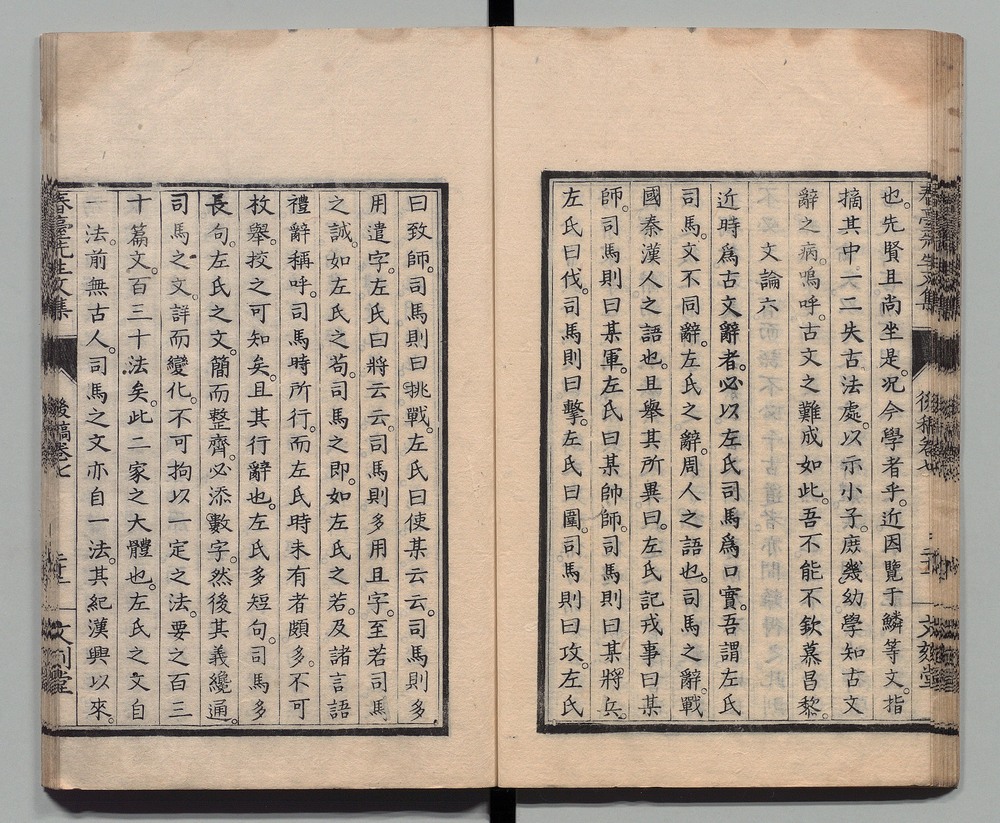 也。先賢且尚坐是。況今學者乎。近因覽于鱗等文。指
摘其中一二失古法處。以示小子。庶幾幼學知古文
辭之病。嗚呼。古文之難成如此。吾不能不欽慕昌黎。
文論六
近時爲古文辭者。必以左氏司馬爲口實。吾謂左氏
司馬文不同辭。左氏之辭。周人之語也。司馬之辭。戰
國秦漢人之語也。且舉其所異曰。左氏記戎事曰某
師。司馬則曰某軍。左氏曰某帥師。司馬則曰某將兵。
左氏曰伐。司馬則曰擊。左氏曰圍。司馬則曰攻。左氏
曰致師。司馬則曰挑戰。左氏曰使某云云。司馬則多
用遣字。左氏曰將云云。司馬則多用且字。至若司馬
之誠。如左氏之苟。司馬之即。如左氏之若。及諸言語
禮辭稱呼。司馬時所行。而左氏時未有者頗多。不可
枚舉。按之可知矣。且其行辭也。左氏多短句。司馬多
長句。左氏之文。簡而整齊。必添數字。然後其義纔通。
司馬之文。詳而變化。不可拘以一定之法。要之百三
十篇文。百三十法矣。此二家之大體也。左氏之文自
一法。前無古人。司馬之文亦自一法。其紀漢興以來。
春臺先生文集
後稿卷七
文刻堂